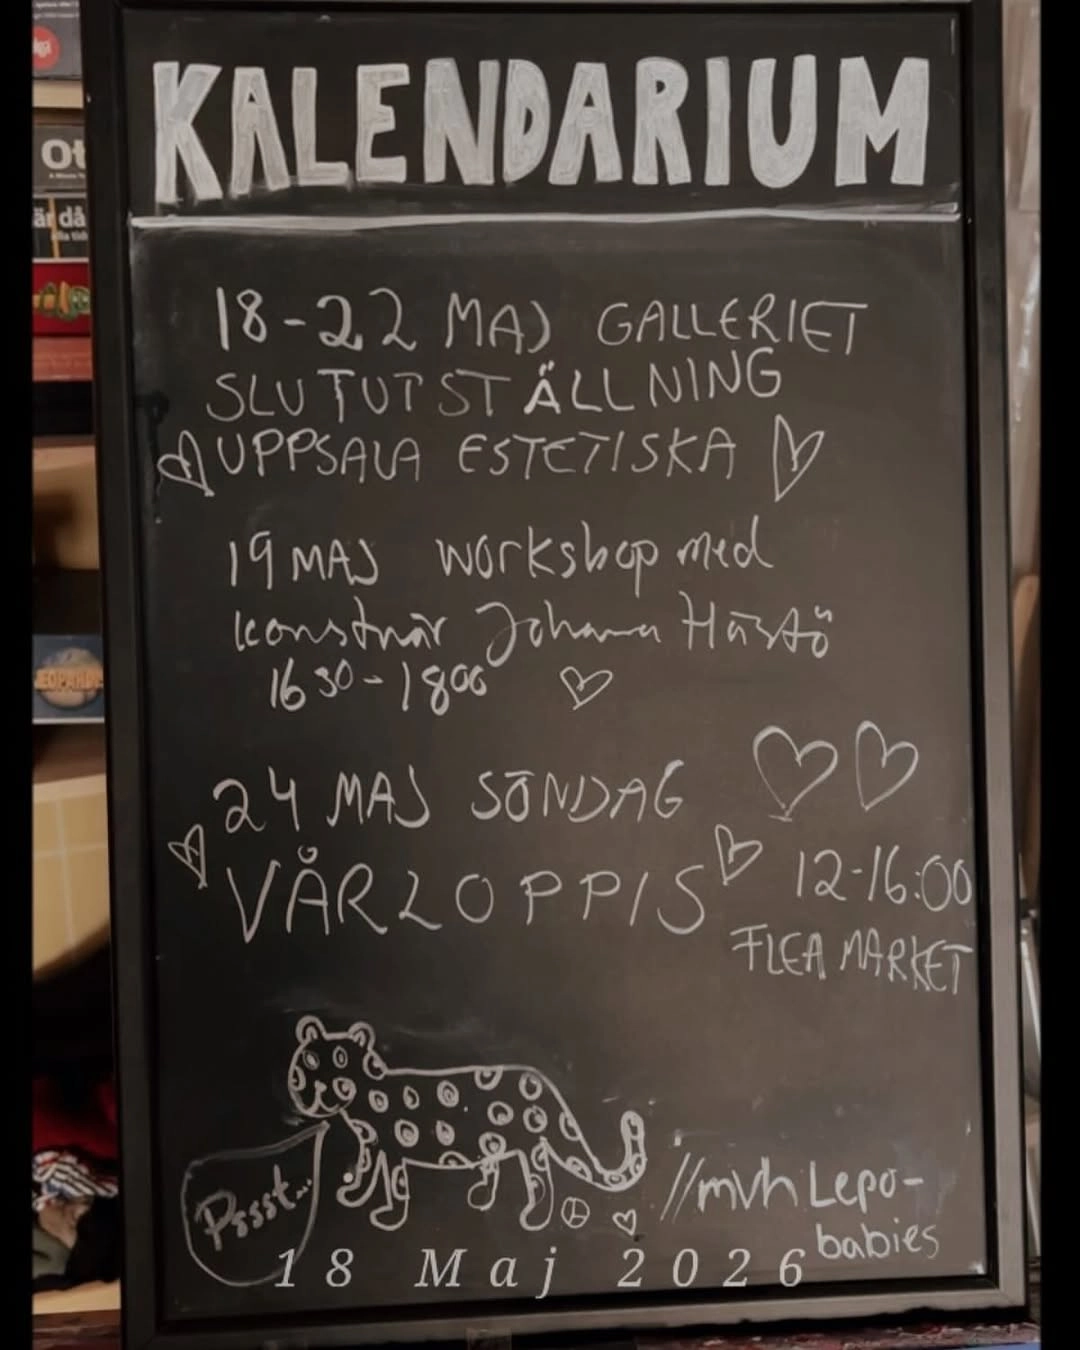 KALENDARIUM
18-22 MAJ GALLERIET
SLUTUTSTÄLLNING
UPPSALA ESTETISKA
19 MAJ workshop med
konstnär Johanna Hästö
16 30 - 18 00
24 MAJ SÖNDAG
VÅRLOPPIS 12-16:00
FLEA MARKET
Pssst...
//mvh Lepo-
babies
18 Maj 2026
Ot
är då
alla tid
JEOPARDY